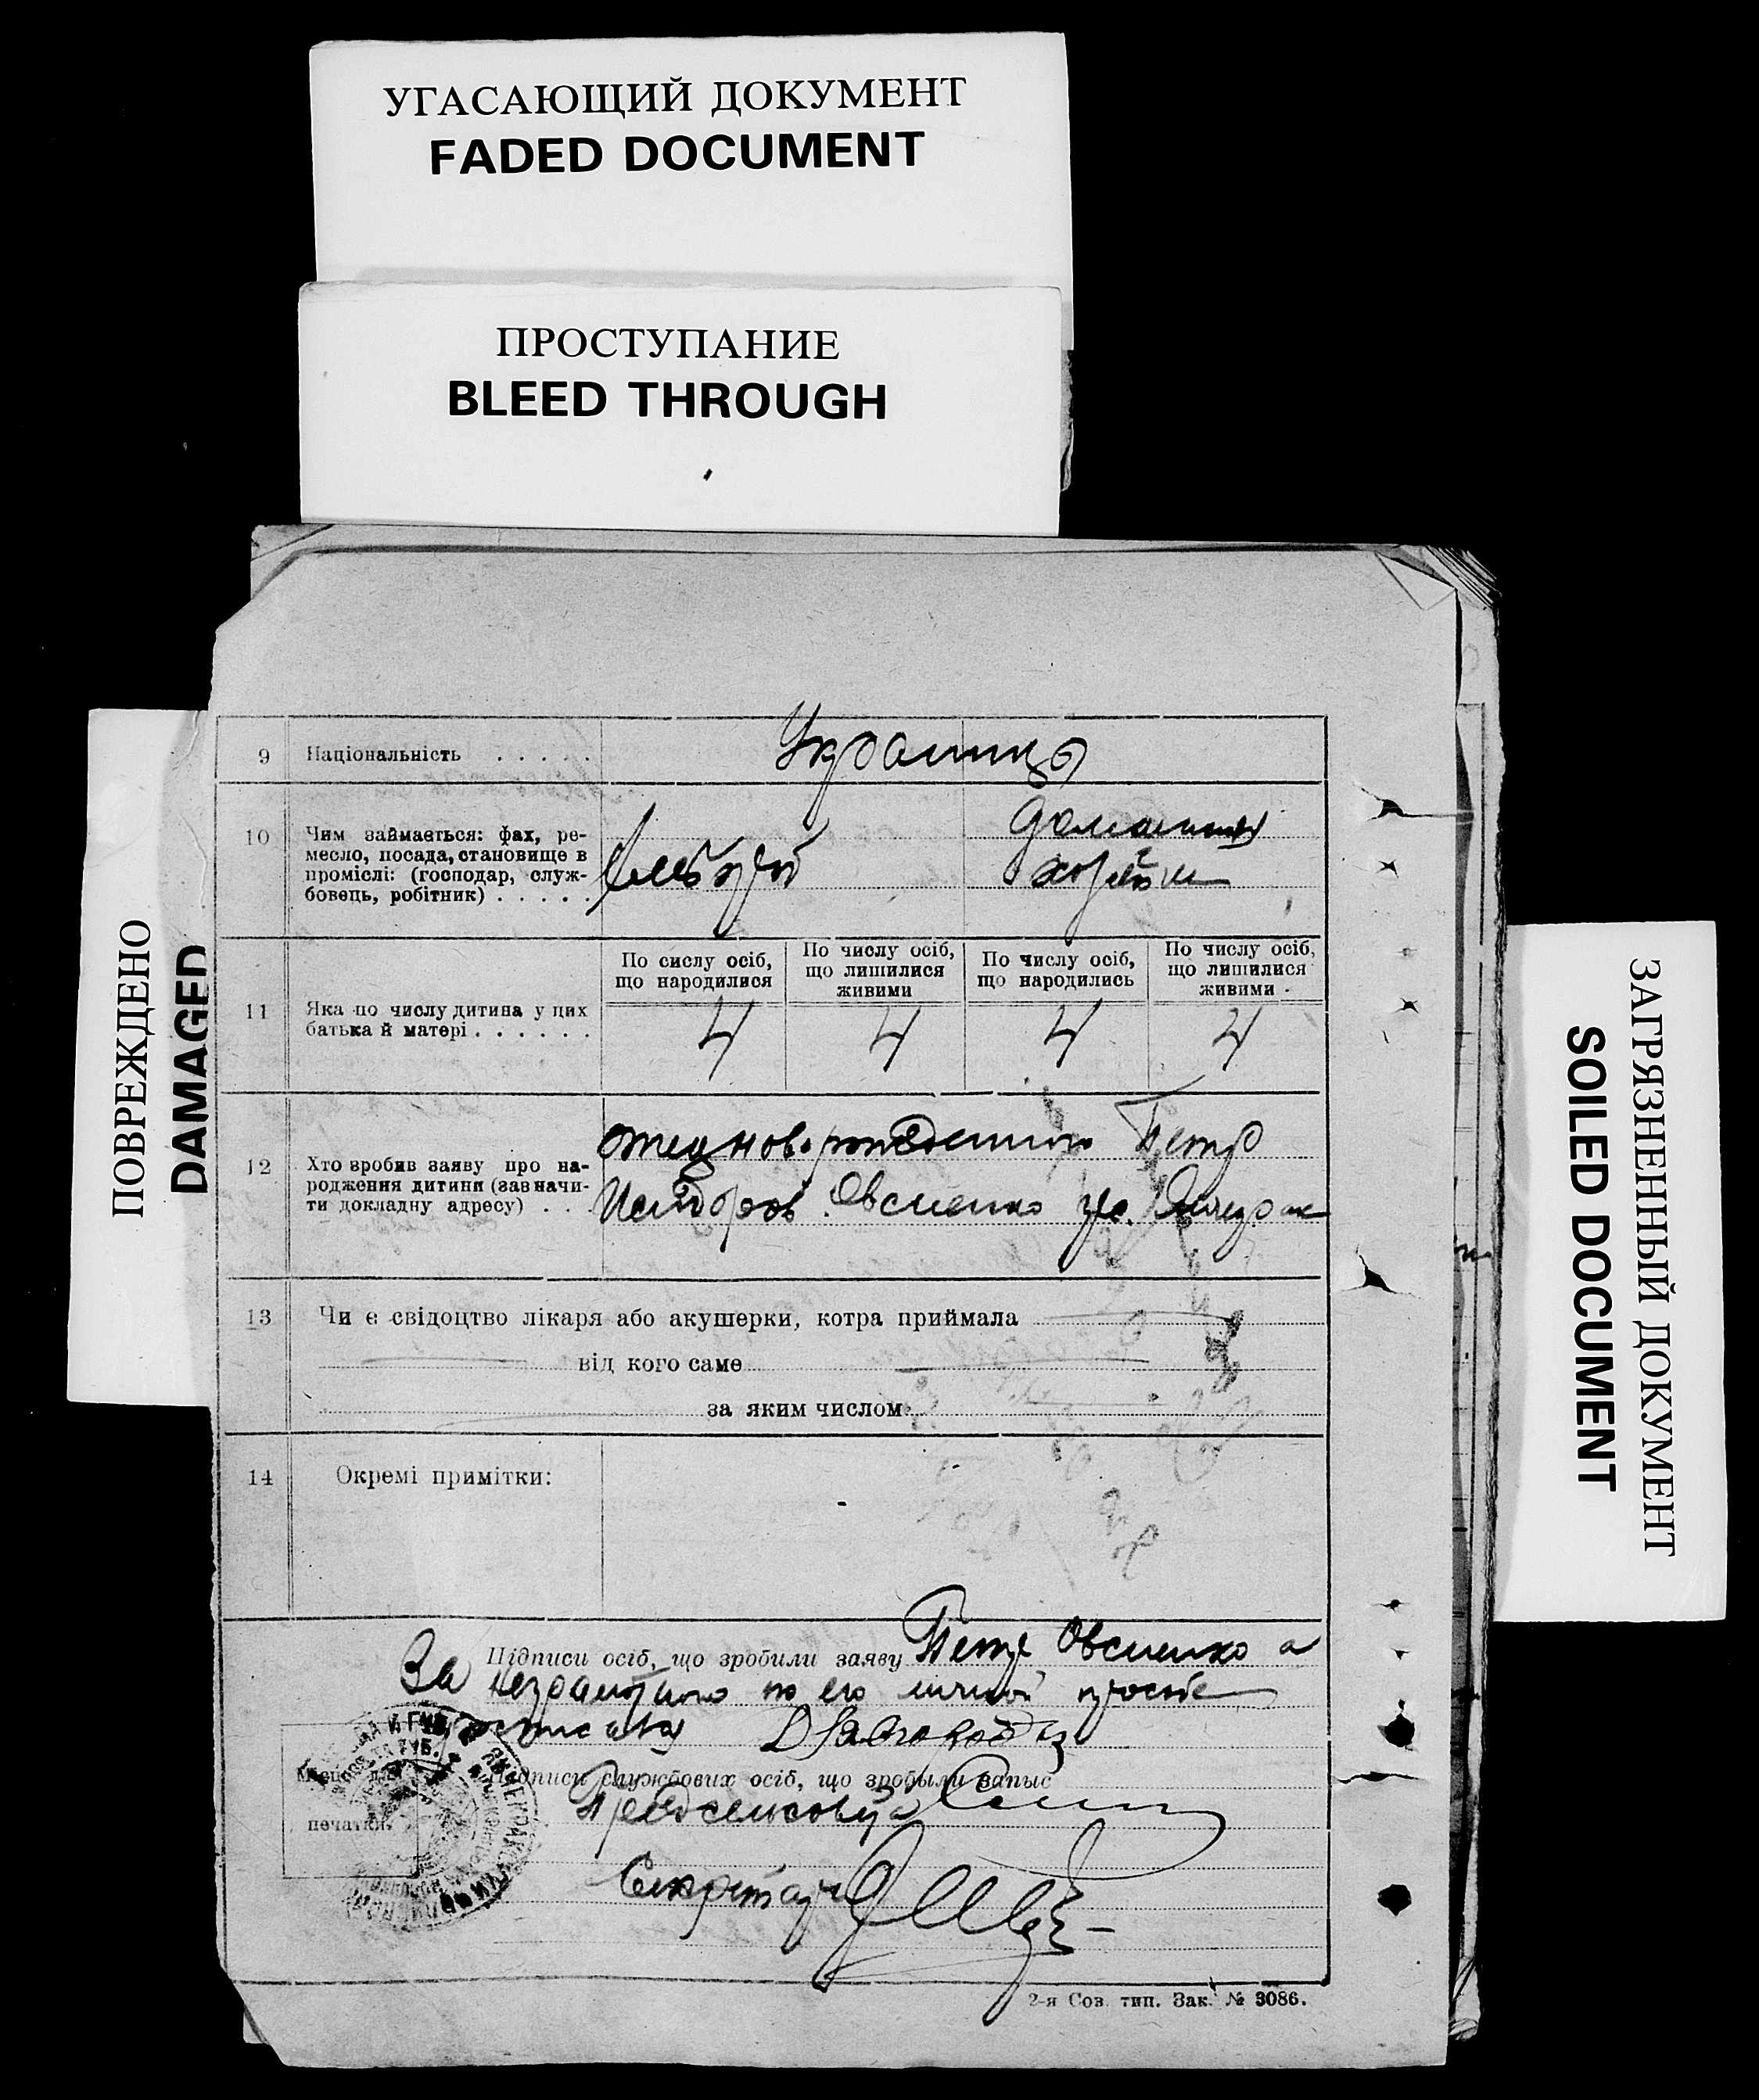 УГАСАЮЩИЙ ДОКУМЕНТ
FADED DOCUMENT
ПРОСТУПАНИЕ
BLEED THROUGH
ПОВРЕЖДЕНО
DAMAGED
ЗАГРЯЗНЕННЫЙ ДОКУМЕНТ
SOILED DOCUMENT
9 Національність . . . . .
10 Чим займається: фах, ре-
месло, посада, становище в
проміслі: (господар, служ-
бовець, робітник) . . . . .
хлебороб
домашняя
хозяйка
11 Яка по числу дитина у цих
батька й матері . . . . . .
По сислу осіб,
що народилися
По числу осіб,
що лишилися
живими
По числу осіб,
що народились
По числу осіб,
що лишилися
живими
4 4 4 4
12 Хто зробив заяву про на-
родження дитини (зазначи-
ти докладну адресу) . . .
отец новорожденного Петр
Исидоров Овсиенко
13 Чи є свідоцтво лікаря або акушерки, котра приймала
від кого саме
за яким числом
14 Окремі примітки:
Підписи осіб, що зробили заяву Петр Овсиенко а
За неграмотного по его личной просьбе
Місце для
печатки.
Підписи службових осіб, що зробыли запыс
Предсельсовета
Секретарь
2-я Сов. тип. Зак. № 3086.